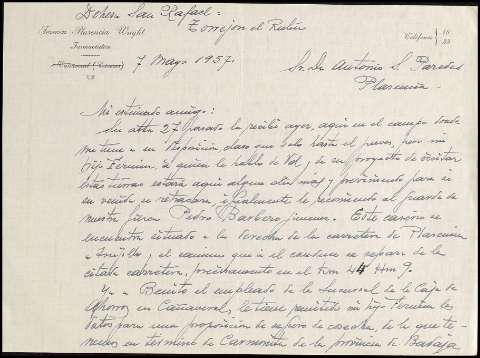 Dehesa San Rafael =
Torrejon el Rubio
Fermin Plasencia Wright
Farmacéutico
7 Mayo 1957.
Teléfonos 16
33
Sr. Dn Antonio S. Paredes
Plasencia.
Mi estimado amigo:
Su atta 27 pasado la recibo ayer, aqui en el campo donde
me tiene a su disposición, claro que solo hasta el jueves, pero mi
hijo Fermin, á quien le hable de Vd, y de su proyecto de visitar
estas tierras estará aqui algun dia mas y previniendo para si
su venida se retrasara, igualmente le recomiendo al guarda de
nuestra finca Pedro Barbero Jimenez. Este caserio se
encuentra situado a la derecha de la carretera de Plasencia
a Trujillo y el camino que á él conduce se separa de la
citada carretera, precisamente en el Km 44 Hm 7.
Y. - Benito el empleado de la Sucursal de la Caja de
Ahorros en Cañaveral, le tiene remitido mi hijo Fermin los
datos para una proposición de seguro de cosecha, de la que te-
nemos en termino de Carmonita de la provincia de Badajoz